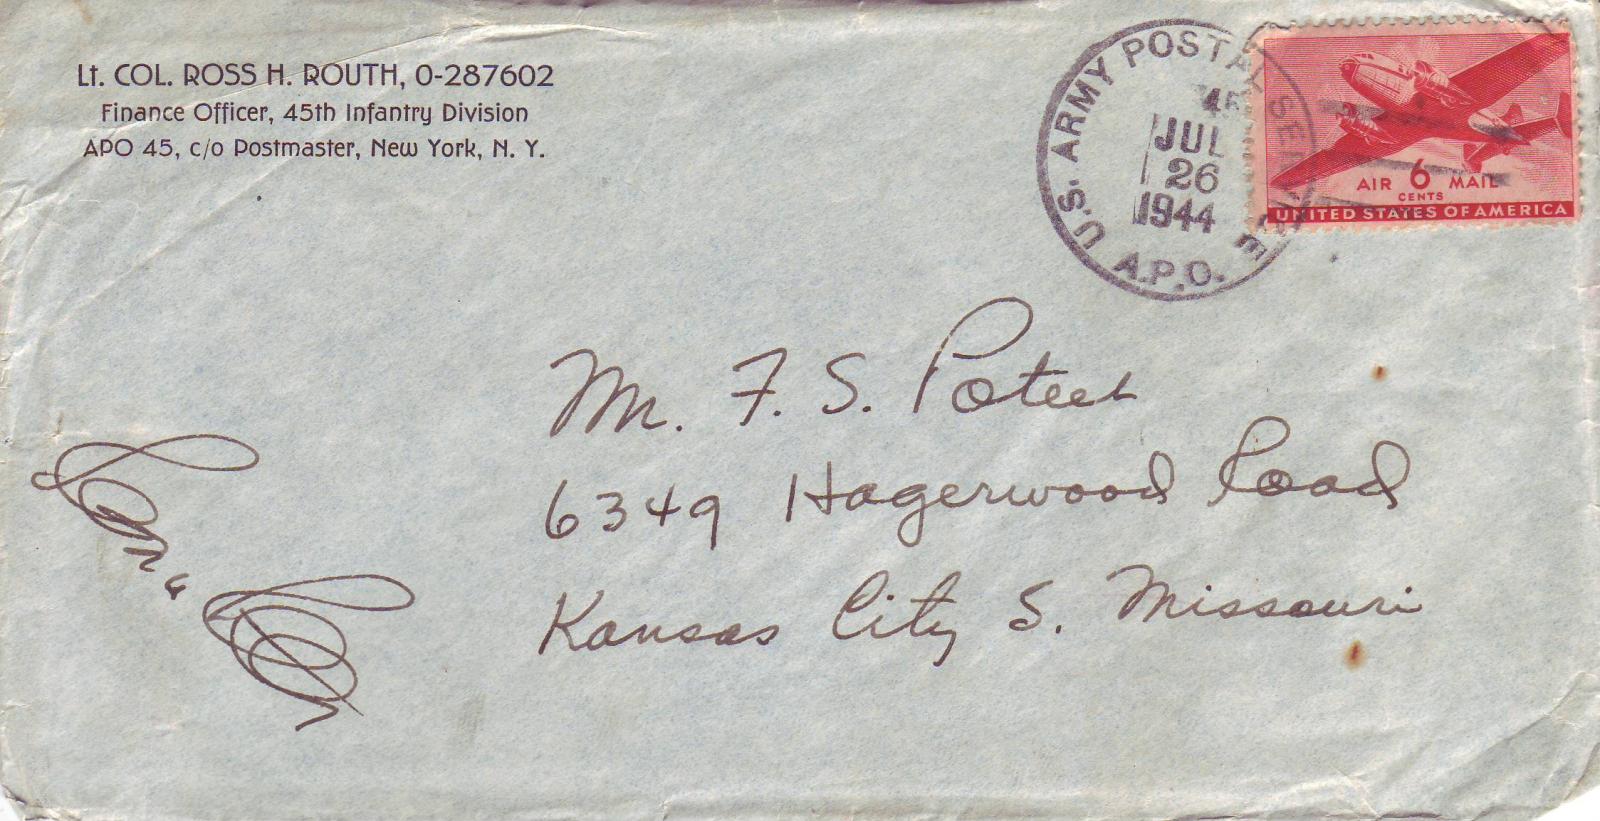 Lt. COL. ROSS H. ROUTH, O-287602
Finance Officer, 45th Infantry Division
APO 45, c/o Postmaster, New York, N. Y.
U.S. ARMY POSTAL SERVICE
45
JUL
26
1944
A.P.O.
AIR 6 MAIL
CENTS
UNITED STATES OF AMERICA
Mr. F. S. Poteet
6349 Hagerwood Road
Kansas City S. Missouri